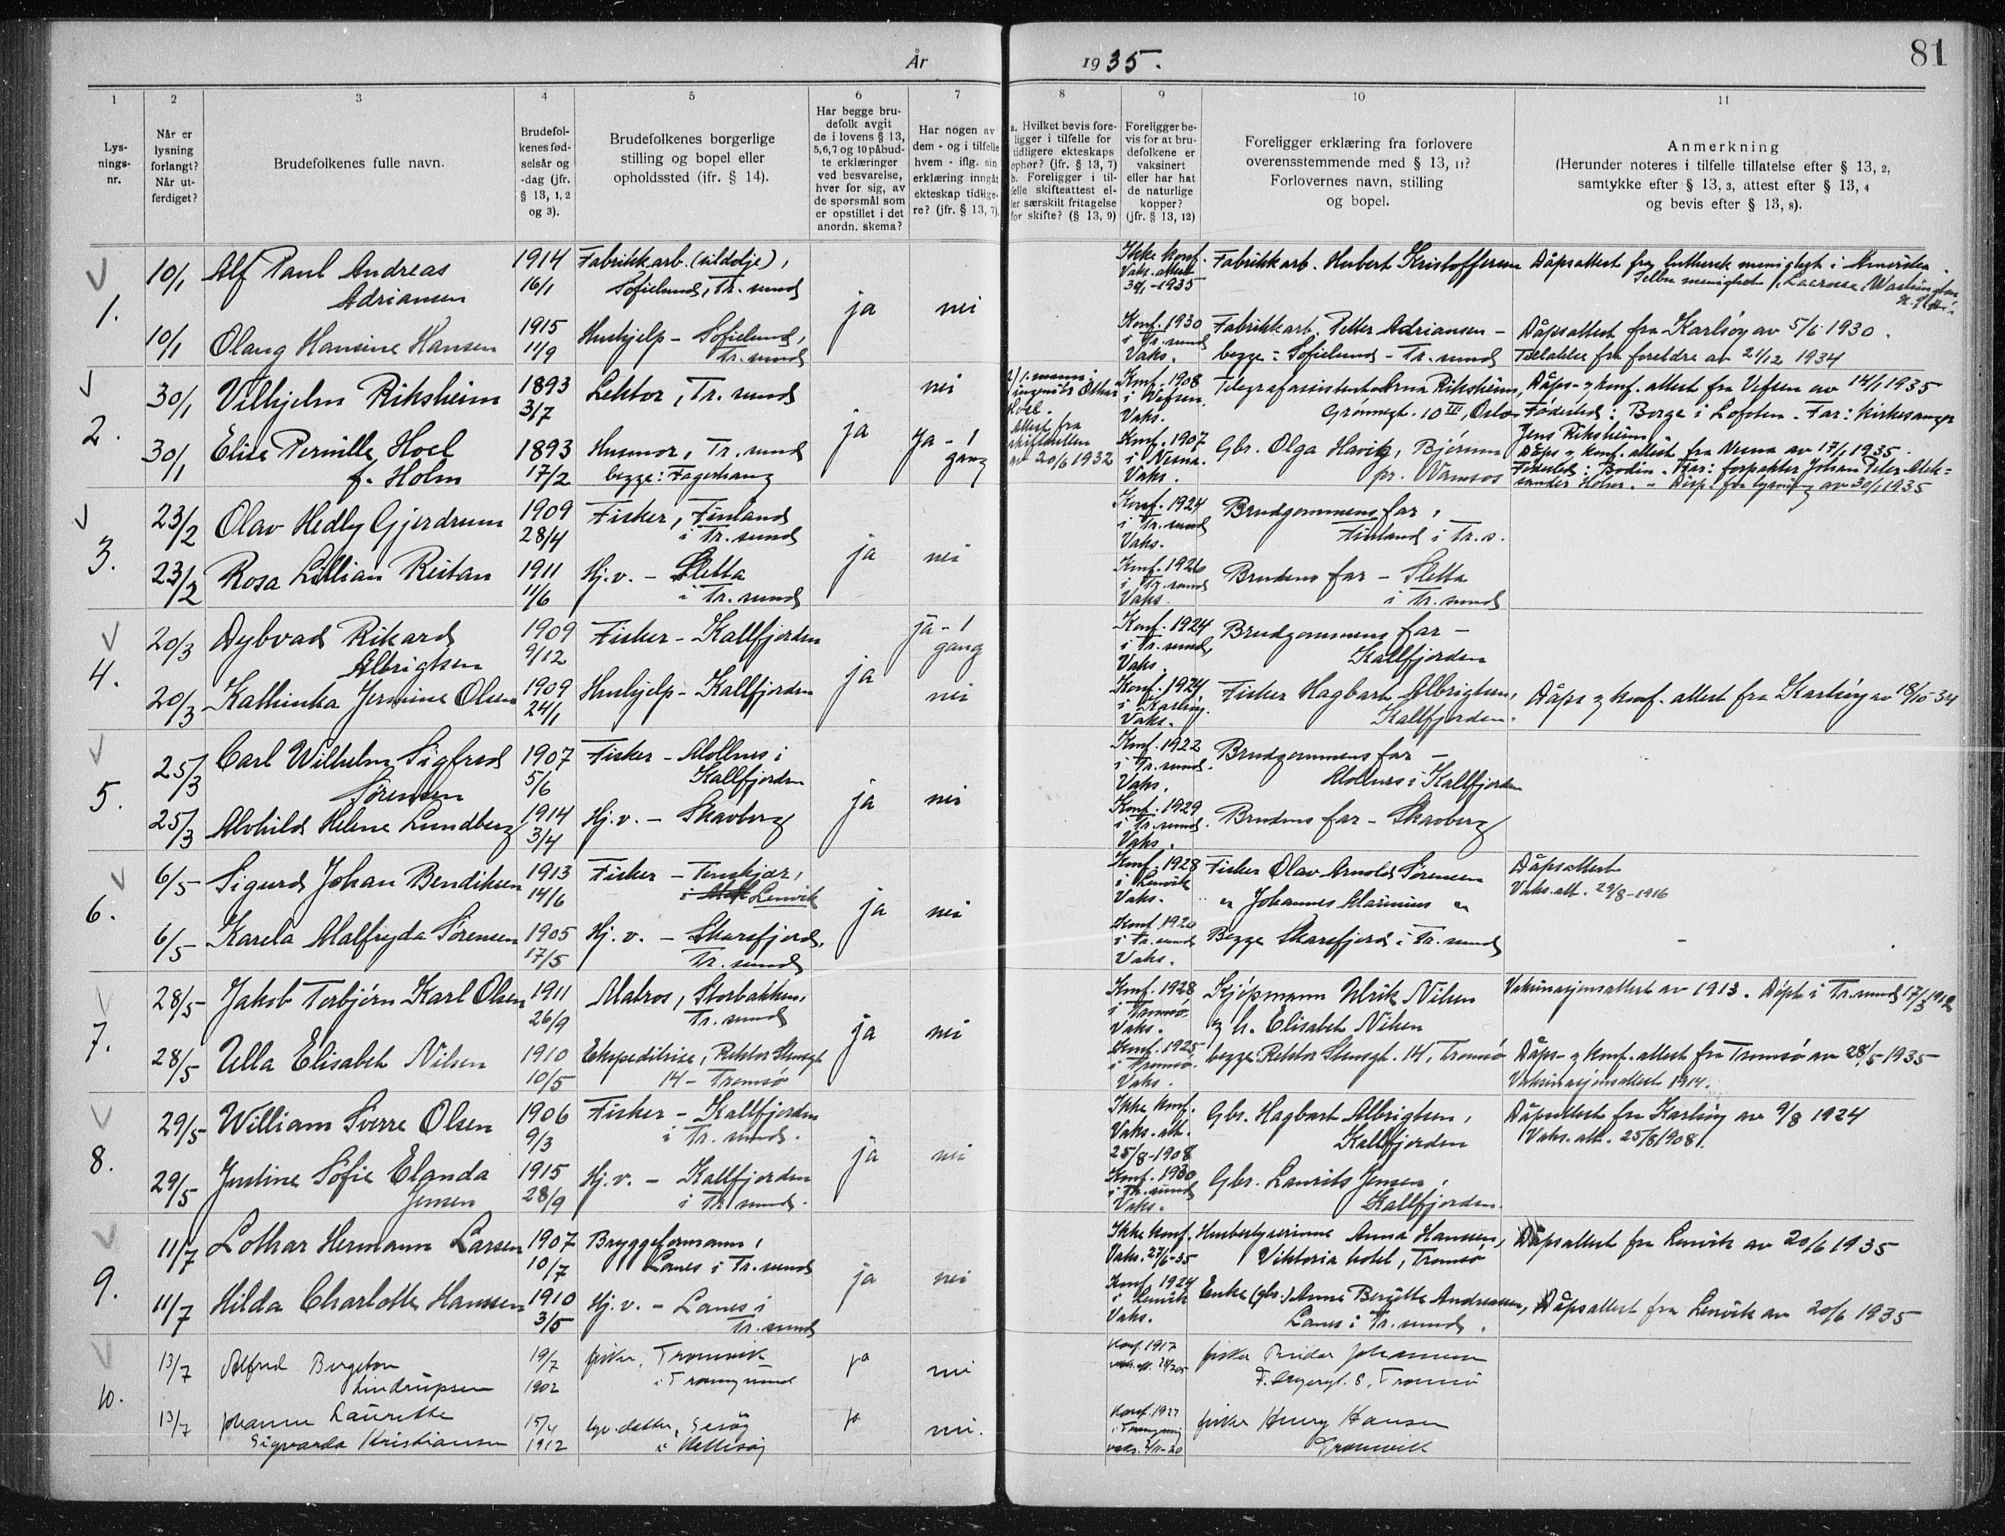 År 1935.
81
1 2 3 4 5 6 7 8 9 10 11
Lys-
nings-
nr.
Når er
lysning
forlangt?
Når ut-
ferdiget?
Brudefolkenes fulle navn.
Brudefol-
kenes fød-
selsår og
-dag (jfr.
§ 13, 1, 2
og 3).
Brudefolkenes borgerlige
stilling og bopel eller
opholdssted (jfr. § 14).
Har begge bru-
defolk avgit
de i lovens § 13,
5, 6, 7 og 10 påbud-
te erklæringer
ved besvarelse,
hver for sig, av
de spørsmål som
er opstillet i det
anordn. skema?
Har nogen av
dem - og i tilfelle
hvem - iflg. sin
erklæring inngåt
ekteskap tidlige-
re? (jfr. § 13, 7).
a. Hvilket bevis fore-
ligger i tilfelle for
tidligere ekteskaps
ophør? (jfr. § 13, 7)
b. Foreligger i til-
felle skifteattest el-
ler særskilt fritagelse
for skifte? (§ 13, 9)
Foreligger be-
vis for at bru-
defolkene er
vaksinert
eller har hat
de naturlige
kopper?
(jfr. § 13, 12)
Foreligger erklæring fra forlovere
overensstemmende med § 13, 11?
Forlovernes navn, stilling
og bopel.
Anmerkning
(Herunder noteres i tilfelle tillatelse efter § 13, 2,
samtykke efter § 13, 3, attest efter § 13, 4
og bevis efter § 13, 8).
1.
10/1 Alf Paul Andreas
Adriansen
1914
16/1
Fabrikkarb. (sildolje),
Sofielund, Tr. sund
ja nei
Ikke konf.
Vaks. attest
30/1-1935
Fabrikkarb. Hubert Kristoffersen
Dåpsattest fra luthersk menighet i Amerika.
Selbu menighet, Lacrosse, Washington
10/1 Olaug Hansine Hansen
1915
11/9
Hushjelp - Sofielund,
Tr. sund
Konf. 1930
i Tr. sund
Vaks.
Fabrikkarb. Petter Adriansen -
begge: Sofielund - Tr. sund
Dåpsattest fra Karlsøy av 5/6 1930.
Tillatelse fra foreldre av 21/12 1934
2.
30/1 Vilhjelm Riksheim
1893
3/7
Lektor, Tr. sund
ja nei
Konf. 1908
i Vefsen.
Vaks.
Telegrafassistent Arna Riksheim,
Grønnegt. 10 III, Oslo
Dåps- og konf. attest fra Vefsen av 14/1 1935
Fødested: Borge i Lofoten. Far: kirkesanger
Jens Riksheim.
30/1 Elise Pernille Hoel
f. Holm
1893
17/2
Husmor, Tr. sund
begge: Fagerhaug
Ja - 1
gang
attest fra
skifteretten
av 20/6 1932
Konf. 1907
i Nesna.
Vaks.
Gbr. Olga Havig, Bjørnn
pr. Vamsos
Dåps og konf. attest fra Nesna av 17/1 1935.
Fødested: Bodin. Far: forpakter Johan Peter Alek-
sander Holm. - Disp. for lysning av 30/1 1935
3.
23/2 Olav Hedly Gjerdrum
1909
28/4
Fisker, Finland
i Tr. sund
ja nei
Konf. 1924
i Tr. sund
Vaks.
Brudgommens far,
Finland i Tr. s.
23/2 Rosa Lillian Reitan
1911
11/6
Hj. v. - Sletta
i Tr. sund
Konf. 1926
i Tr. sund
Vaks.
Brudens far - Sletta
i Tr. sund
4.
20/3 Dybvad Rikard
Albrigtsen
1909
9/12
Fisker - Kallfjorden
ja
ja - 1
gang
Konf. 1924
i Tr. sund,
Vaks.
Brudgommens far -
Kallfjorden
20/3 Kathinka Jermine Olsen
1909
24/1
Hushjelp - Kallfjorden
nei
Konf. 1924
i Karlsøy.
Vaks.
Fisker Hagbart Albrigtsen,
Kallfjorden.
Dåps og konf. attest fra Karlsøy av 18/10-34
5.
25/3 Carl Wilhelm Sigfred
Sørensen
1907
5/6
Fisker - Mollnes i
Kallfjorden
ja nei
Konf. 1922
i Tr. sund.
Vaks.
Brudgommens far -
Mollnes i Kallfjorden
25/3 Alvhild Helene Lundberg
1914
3/4
Hj. v. - Skavberg
Konf. 1929
i Tr. sund.
Vaks.
Brudens far - Skavberg
6.
6/5 Sigurd Johan Bendiksen
1913
14/6
Fisker - Tennskjær,
i Lenvik
ja nei
Konf. 1928
i Lenvik
Vaks.
Fisker Olav Arnold Sørensen
" Johannes Marinius "
Dåpsattest
Vaks. att. 29/8-1916
6/5 Karela Malfryda Sørensen
1905
17/5
Hj. v. - Skarsfjord,
Tr. sund
Konf. 1920
i Tr. sund
Vaks.
Begge Skarsfjord i Tr. sund
7.
28/5 Jakob Torbjørn Karl Olsen
1911
26/9
Matros, Storbakken,
Tr. sund
ja nei
Konf. 1928
i Tromsø.
Vaks.
Kjøpmann Ulrik Nilsen
og h. Elisabet Nilsen
Vaksinasjonsattest av 1913. Døpt i Tr. sund 17/3 1912
28/5 Ulla Elisabet Nilsen
1910
10/5
Ekspeditrise, Rektor Stensgt
14 - Tromsø
Konf. 1925
i Tromsø.
Vaks.
begge: Rektor Stensgt. 14, Tromsø
Dåps- og konf. attest fra Tromsø av 28/5 1935
Vaksinasjonsattest 1914.
8.
29/5 William Sverre Olsen
1906
9/3
Fisker - Kallfjorden
i Tr. sund.
ja nei
Ikke konf.
Vaks. att.
25/8-1908
Gbr. Hagbart Albrigtsen,
Kallfjorden
Dåpsattest fra Karlsøy av 9/8 1924
Vaks. att. 25/8 1908.
29/5 Justine Sofie Elanda
Jensen
1915
28/9
Hj. v. - Kallfjorden
i Tr. sund.
Konf. 1930
i Tr. sund
Vaks.
Gbr. Laurits Jensen,
Kallfjorden.
9.
11/7 Lothar Hermann Larsen
1907
10/7
Bryggeformann,
Lanes i Tr. sund
ja nei
Ikke konf.
Vaks. 27/6-35
Husbestyrerinne Anna Hansen,
Viktoria hotel, Tromsø
Dåpsattest fra Lenvik av 20/6 1935
11/7 Hilda Charlotte Hanssen
1910
3/5
Hj. v. - Lanes i
Tr. sund
Konf. 1924
i Lenvik
Vaks.
Enke (gbr.) Anne Bergitte Andreassen,
Lanes i Tr. sund.
Dåpsattest fra Lenvik av 20/6 1935
10.
13/7 Alfred Bergeton
Lindrupsen
19/7
1902
fisker, Tromvik
i Tromsøysund
ja nei
Konf. 1917
fisker Peder Johansen
Tromsø
13/7 Johanne Laurette
Sigvarda Kristiansen
15/4
1912
datter, Gåsøy
i Hillesøy
ja nei.
Konf. 1927
fisker Henry Hansen
Tromvik